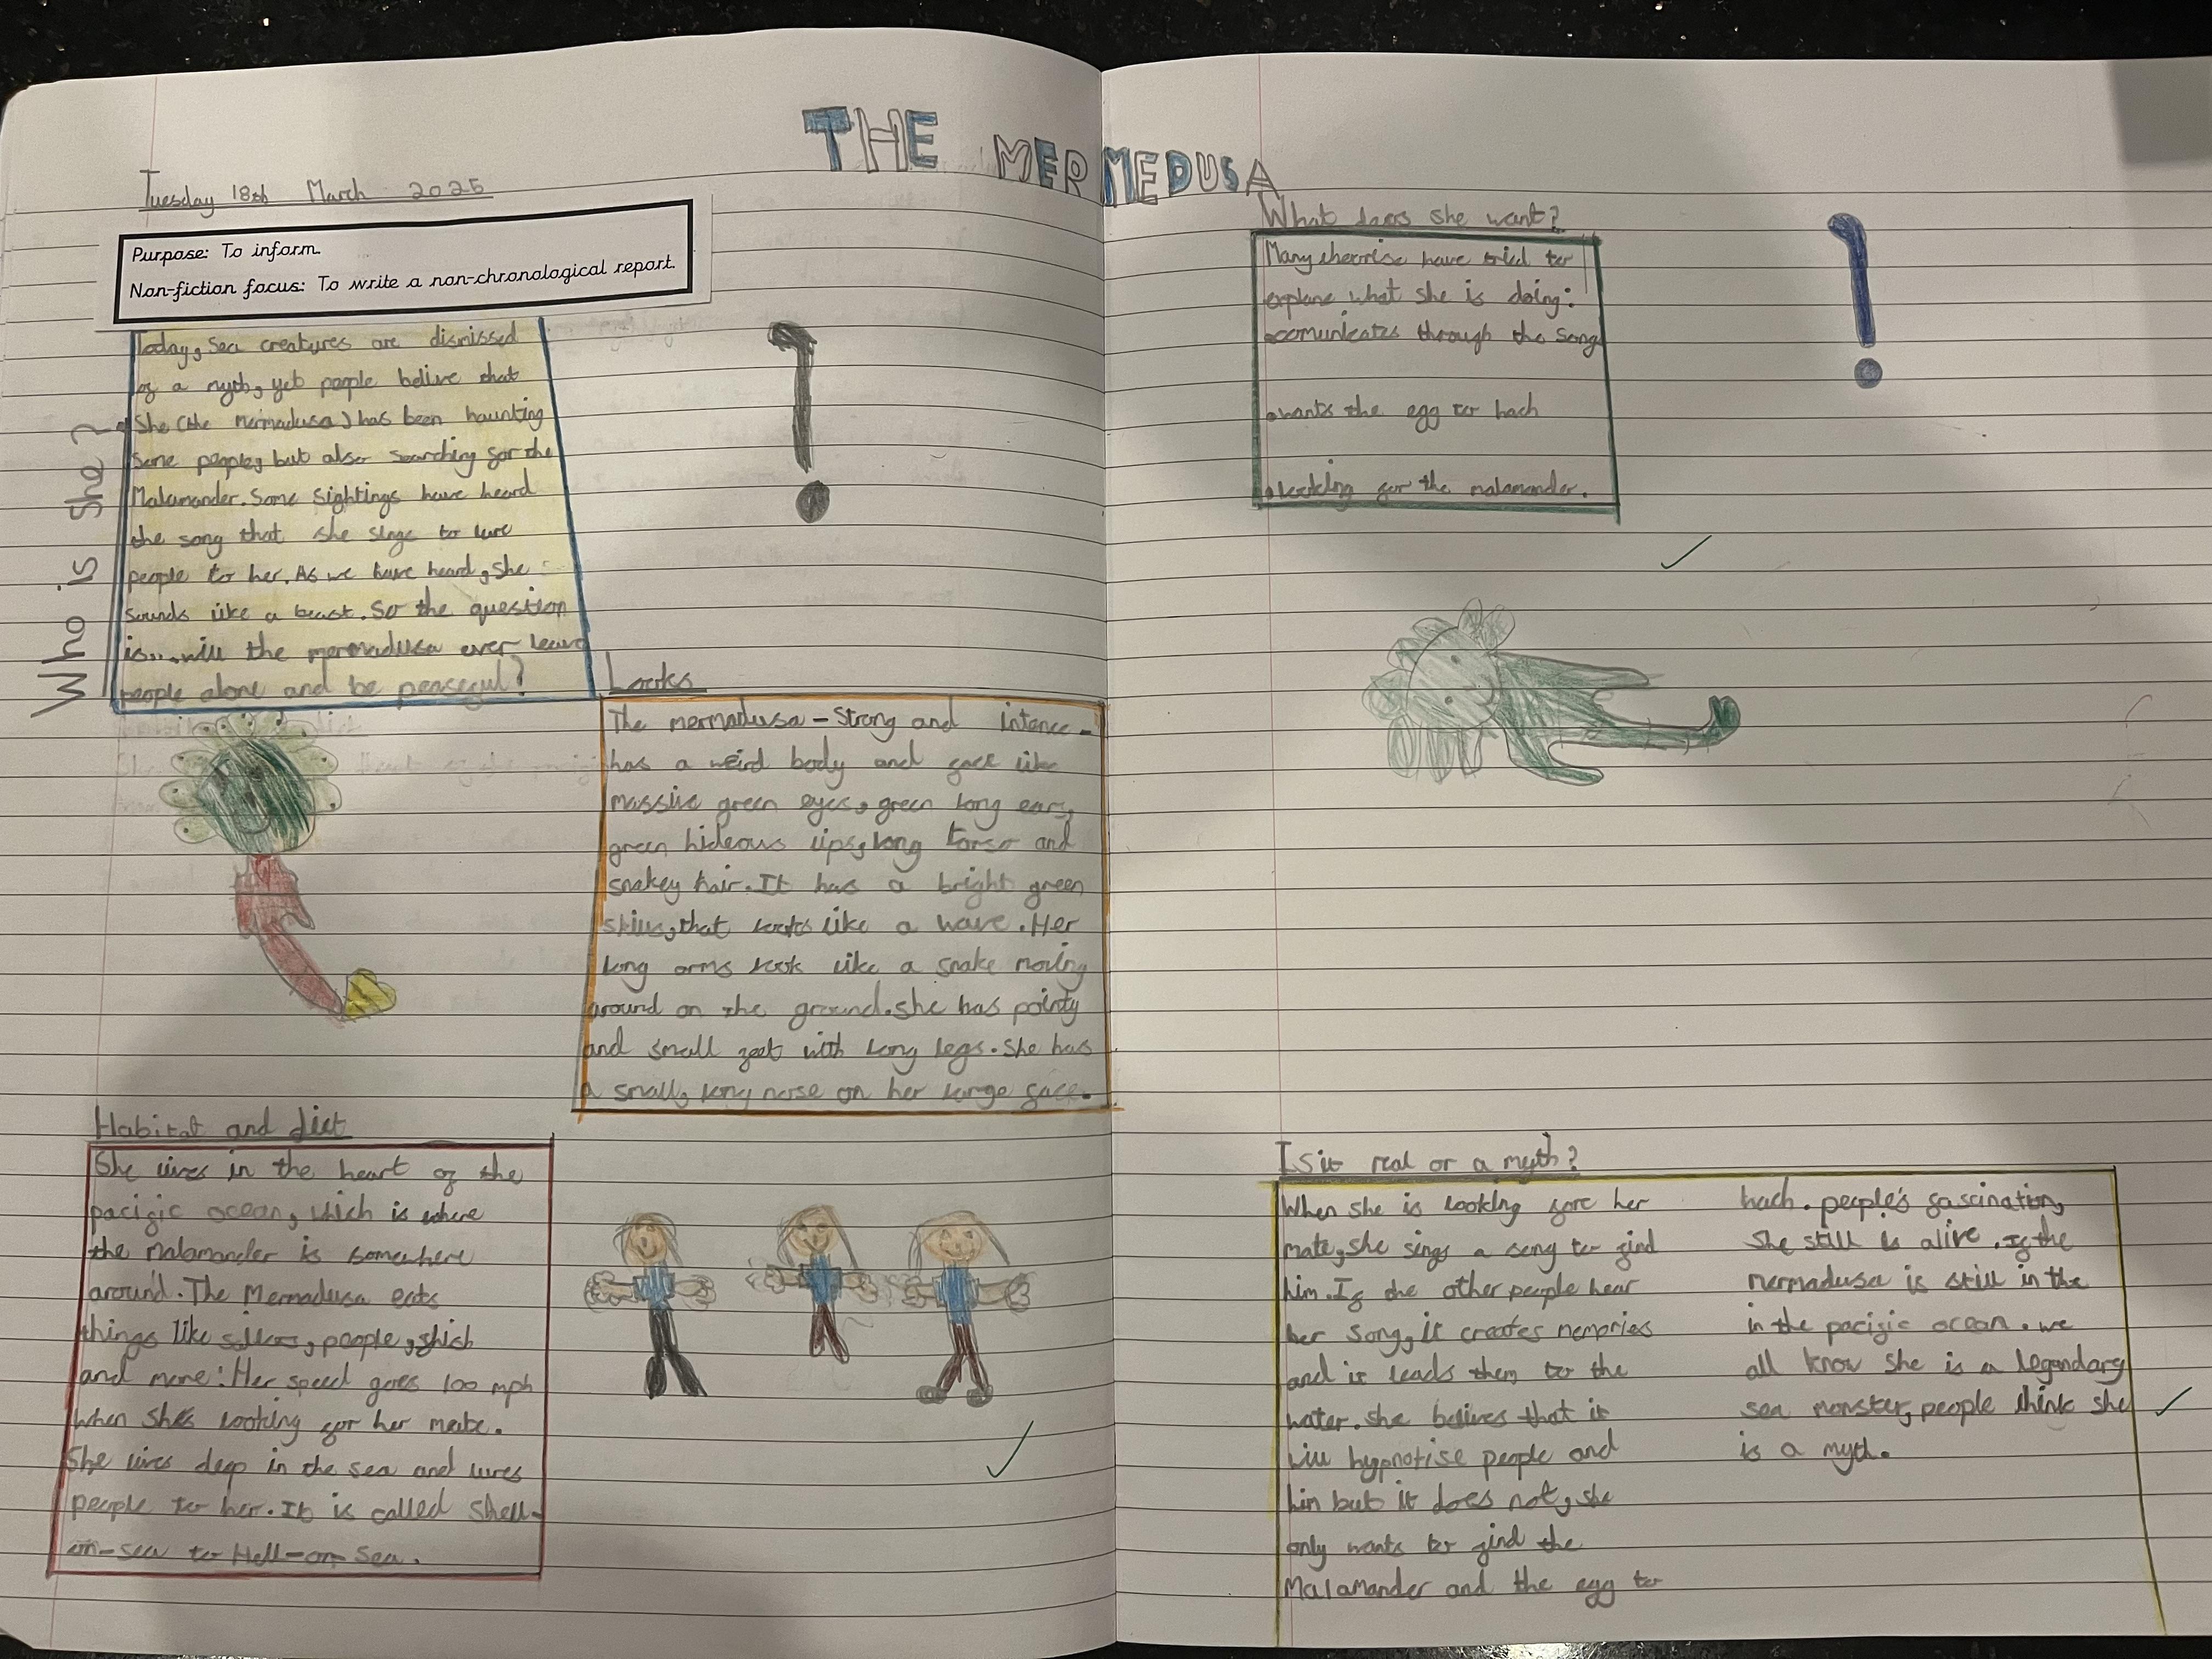 THE MERMEDUSA
Tuesday 18th March 2025
Purpose: To inform.
Non-fiction focus: To write a non-chronological report.
Who is she?
Today, sea creatures are dismissed
of a myth, yet people belive that
She (the Mermadusa) has been haunting
some people, but also searching for the
Malamander. Some sightings have heard
the song that she sings to lure
people to her. As we have heard, she
sounds like a beast. So the question
is.... will the mermadusa ever leave
people alone and be peaceful?
Looks
The mermadusa - Strong and intence -
has a weird body and face like
massive green eyes, green long ears,
green hideous lips, long torso and
snakey hair. It has a bright green
that looks like a wave. Her
long arms look like a snake moving
around on the ground. she has pointy
and small feet with long legs. She has
a small, long nose on her large face.
Habitat and diet
She lives in the heart of the
pacific ocean, which is where
the Malamander is somewhere
around. The Mermadusa eats
things like people,
and more! Her speed goes 100 mph
when she's looking for her mate.
She lives deep in the sea and lures
people to her. It is called Shell-
on-sea to Hell-on-Sea.
What does she want?
Many have tried to
explane what she is doing:
•comunicates through the song
•wants the egg to hach
•looking for the malamander.
Is it real or a myth?
When she is looking fore her
mate, she sings a song to find
him. If the other people hear
her song, it creates memories
and it leads them to the
water. she belives that it
will hypnotise people and
him but it does not, she
only wants to find the
Malamander and the egg to
hach. people's fascination,
she still is alive. If the
mermadusa is still in the
in the pacific ocean. we
all know she is a legendary
sea monster, people think she
is a myth.